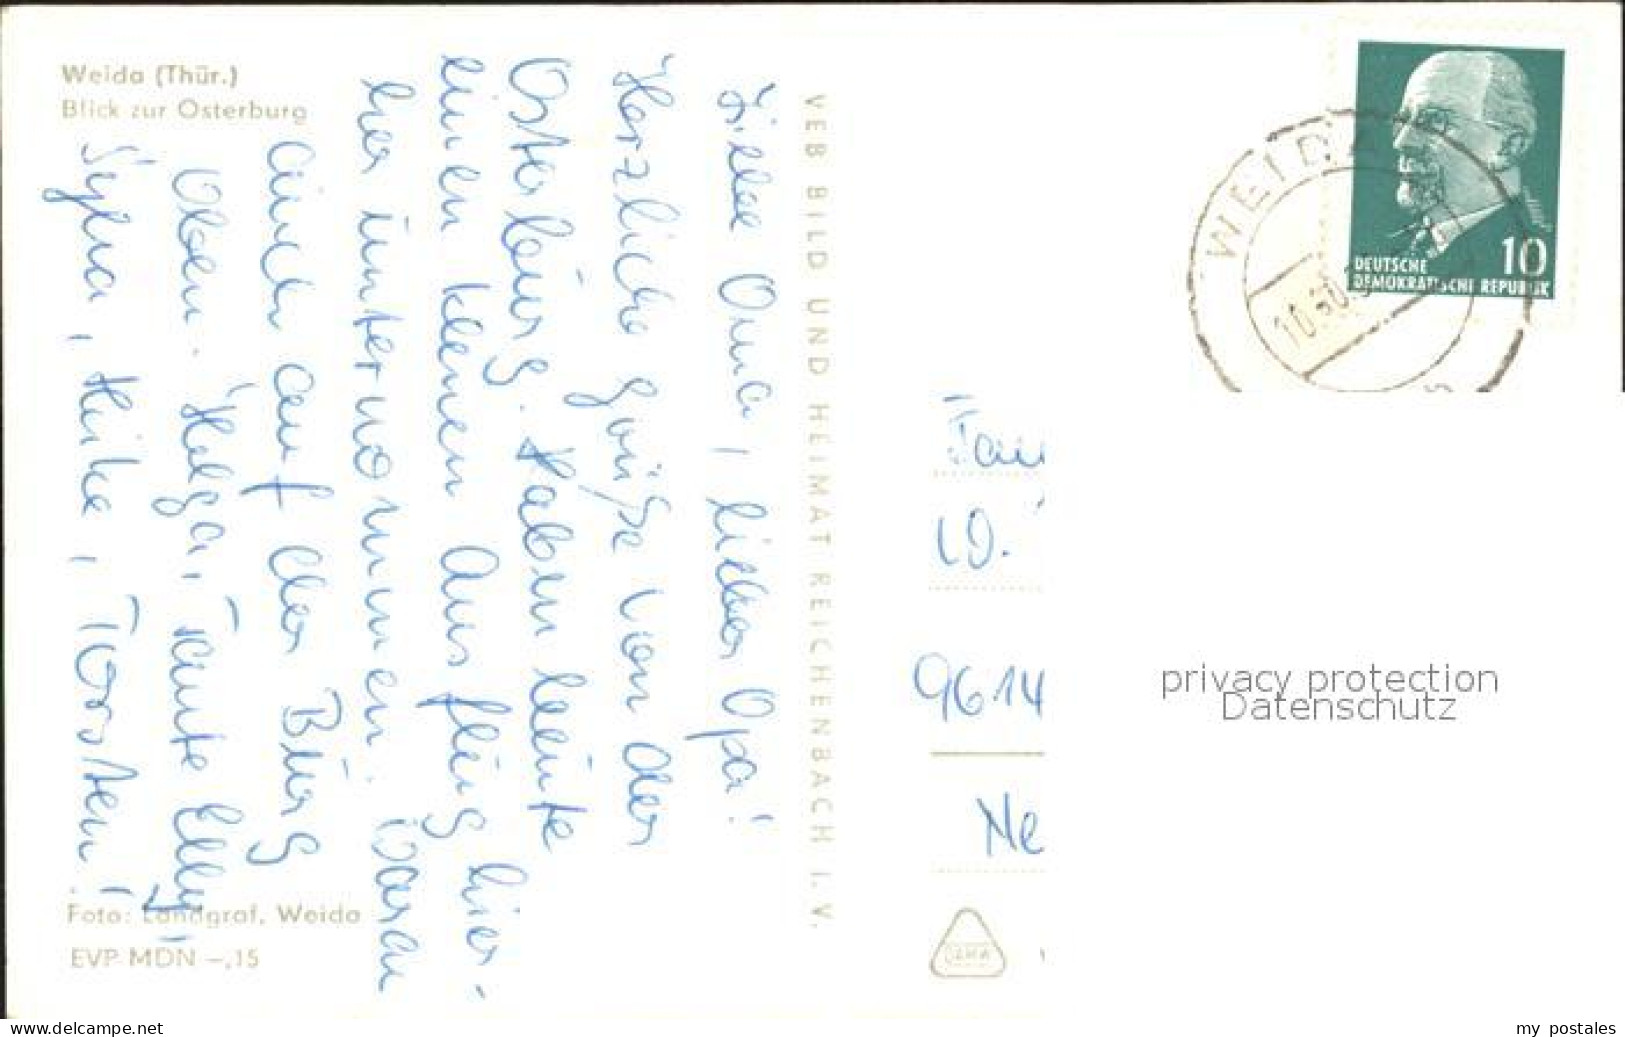 Weida (Thür.)
Blick zur Osterburg
Liebe Oma, lieber Opa!
Herzliche Grüße von der
Osterburg. Haben heute
einen kleinen Ausflug hier-
her unternommen. Waren
auch auf der Burg
oben. Helga, Tante Elly,
Sylva, Heike, Torsten!
Foto: Landgraf, Weida
EVP MDN –,15
VEB BILD UND HEIMAT REICHENBACH I. V.
WEIDA
10
DEUTSCHE
DEMOKRATISCHE REPUBLIK
10.
9614
Ne
privacy protection
Datenschutz
www.delcampe.net
my postales